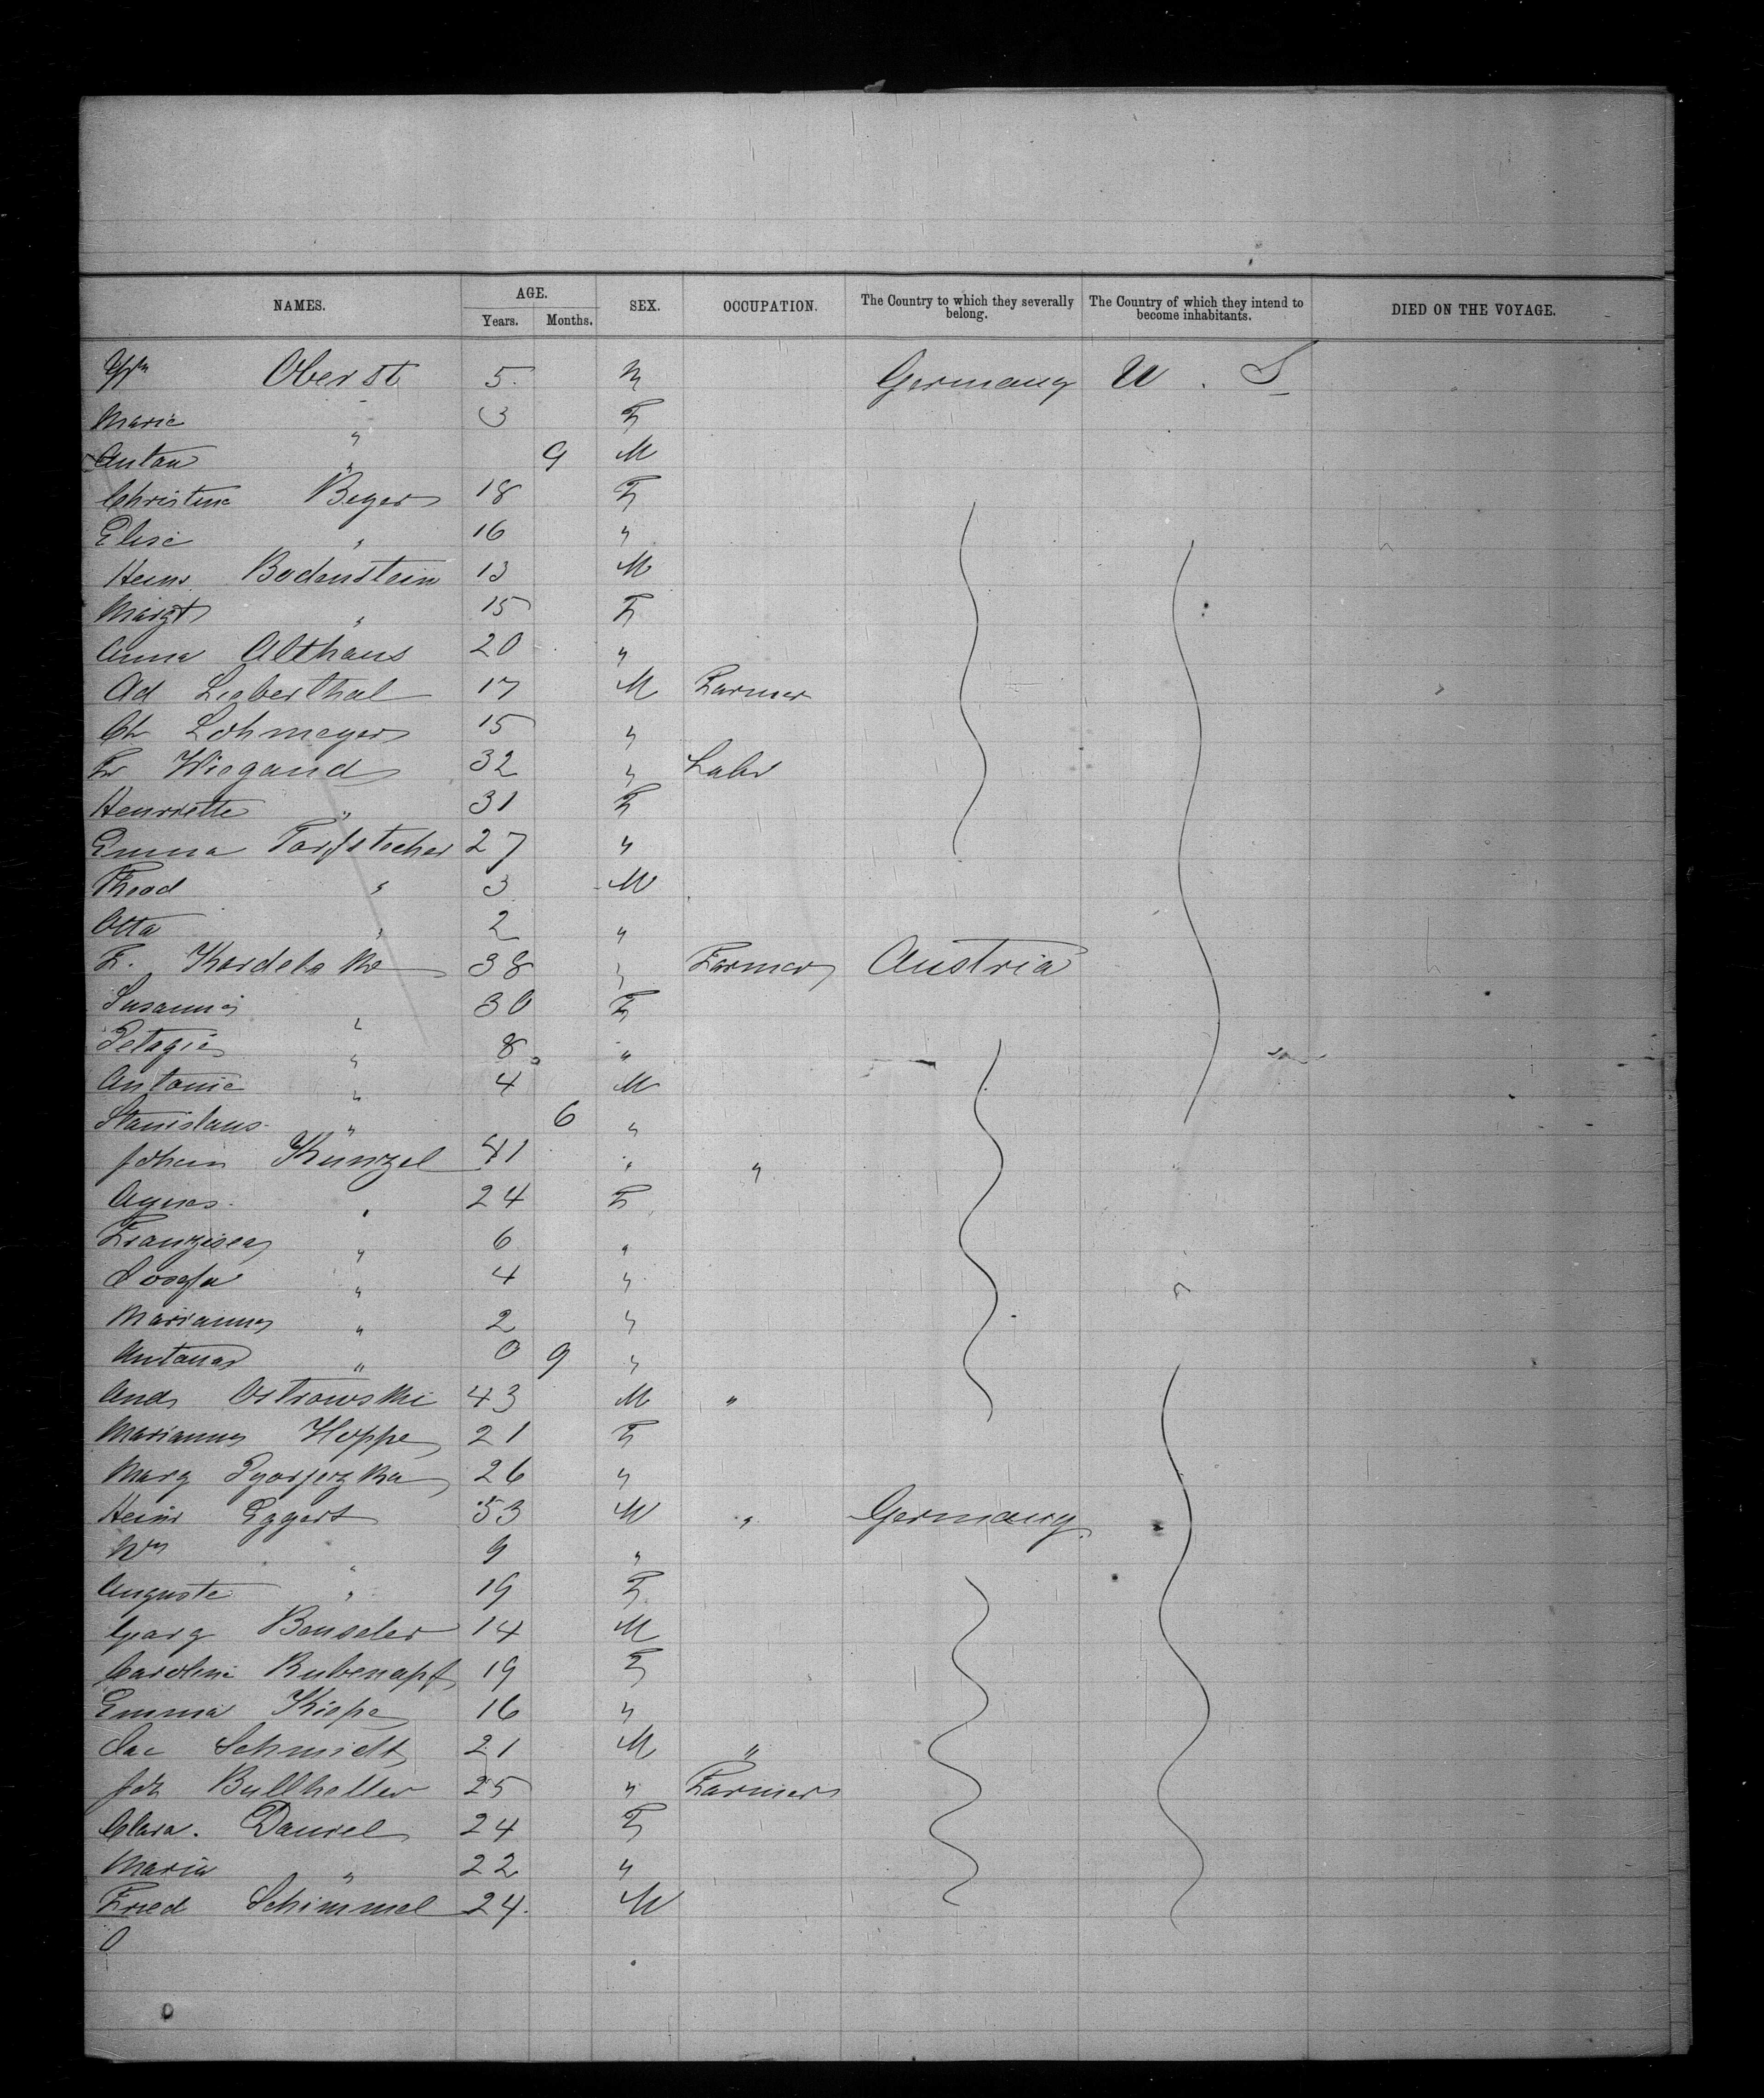 NAMES. AGE. SEX. OCCUPATION. The Country to which they severally belong. The Country of which they intend to become inhabitants. DIED ON THE VOYAGE.
Years. Months.
Wm Oberst 5 M Germany U. S
Marie " 3 F
Anton " 9 M
Christine Beyer 18 F
Elise " 16 "
Heinr Bodenstein 13 M
Margt " 15 F
Anna Althaus 20 "
Ad Lieberthal 17 M Farmer
Ch Lohmeyer 15 "
Fr Wiegand 32 " Labr
Henriette " 31 F
Emma Torfstecher 27 "
Theod " 3 M
Otto " 2 "
F. 38 " Farmer Austria
Susanna " 30 F
Pelagie " 8 "
Antonie " 4 M
Stanislaus " 6 "
Johan Kunzel 41 " "
Agnes " 24 F
Franzisca " 6 "
Josefa " 4 "
Marianna " 2 "
" 0 9 "
And Ostrowski 43 M "
Marianna Hoppe 21 F
Marg 26 "
Heinr Eggert 53 M " Germany
Wm " 9 "
Auguste " 19 F
Georg Benseler 14 M
Caroline 19 F
Emma Kiepe 16 "
Jac Schmidt 21 M "
Joh Bullheller 25 " Farmer
Clara. Daniel 24 F
Maria " 22 "
Fried Schimmel 24. M